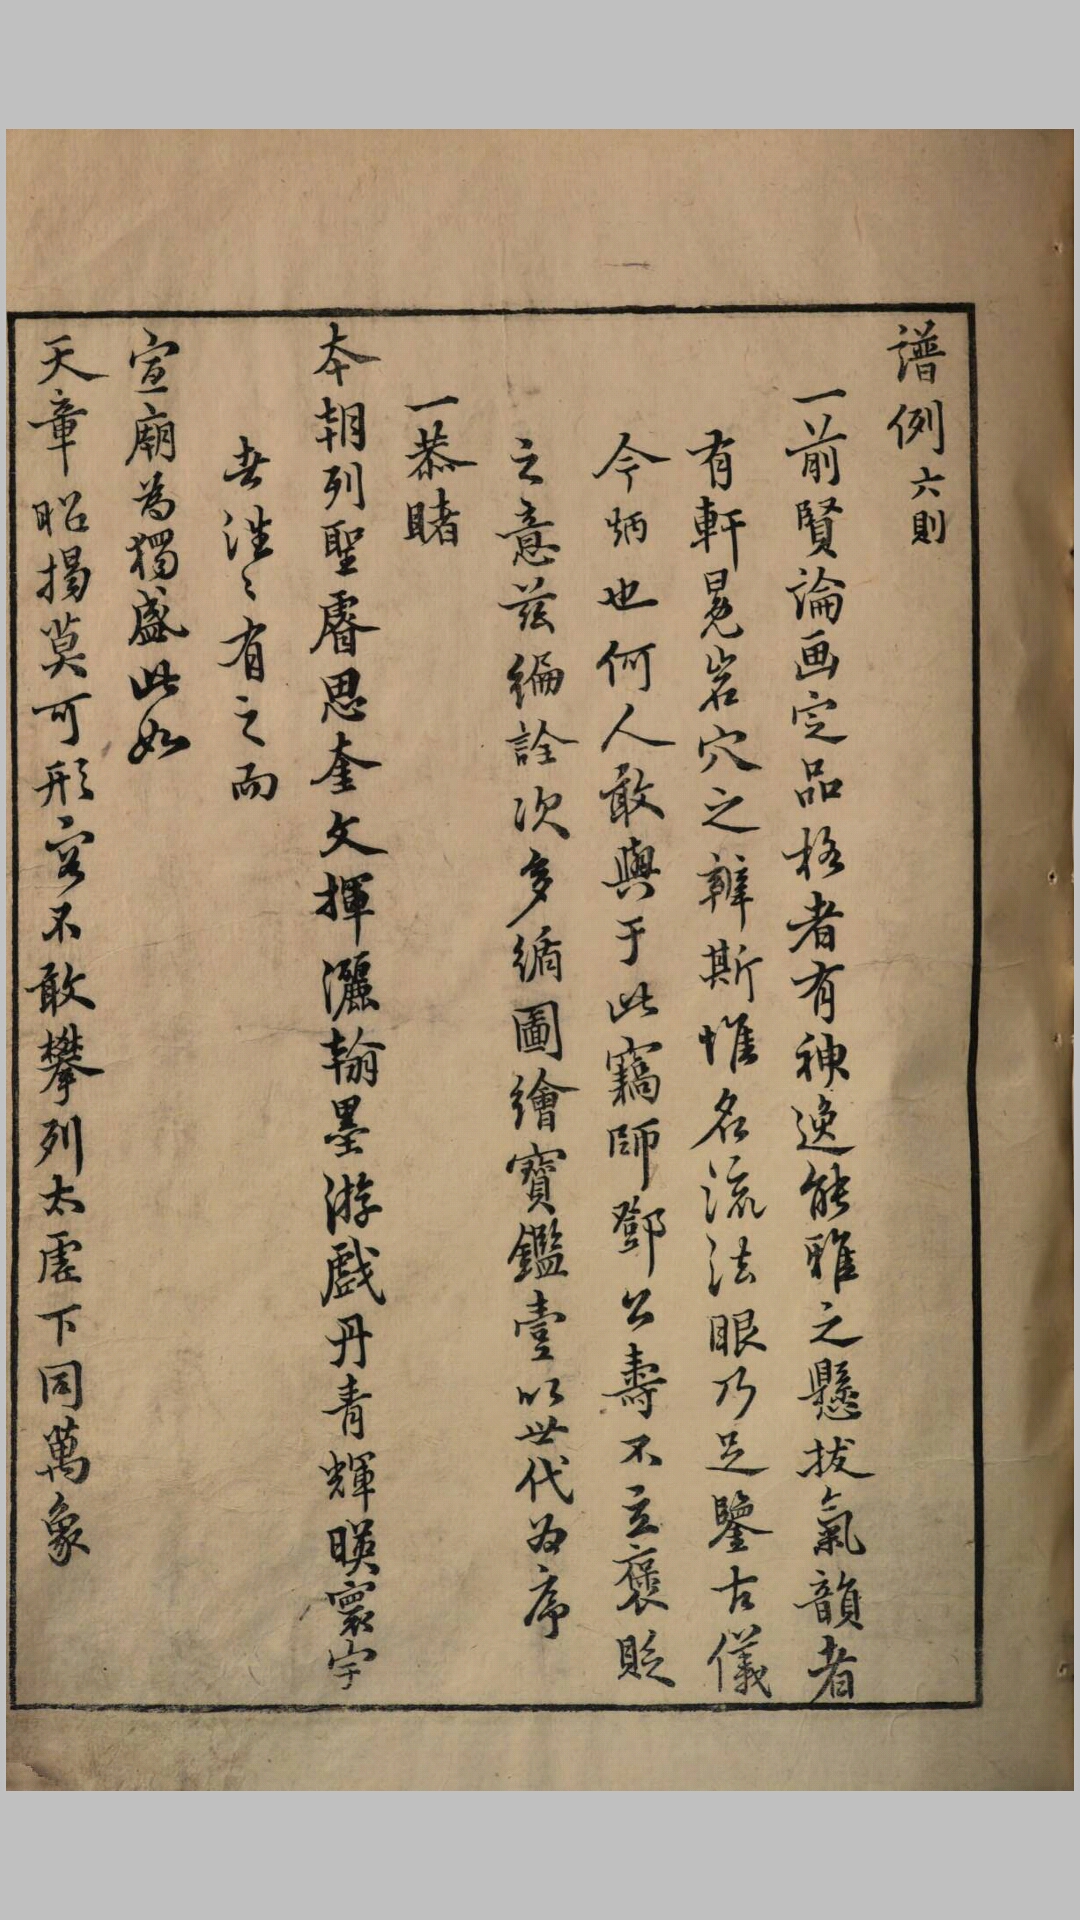 譜例六則
一前賢論画定品格者有神逸能雅之懸拔氣韻者
有軒冕岩穴之辨斯惟名流法眼乃足鑒古儀
今炳也何人敢與于此竊師鄧公壽不立褒貶
之意茲編詮次多循圖繪寶鑑壹以世代為序
一恭睹
本朝列聖睿思奎文揮灑翰墨游戲丹青輝暎寰宇
者往〻有之而
宣廟為獨盛此如
天章昭揭莫可形容不敢攀列太虛下同萬象